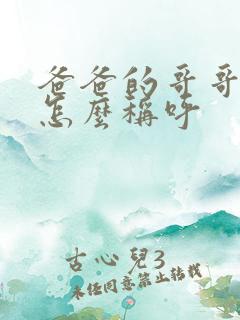 爸爸的哥哥
怎麼稱呼
古心兒3
未經同意禁止轉載